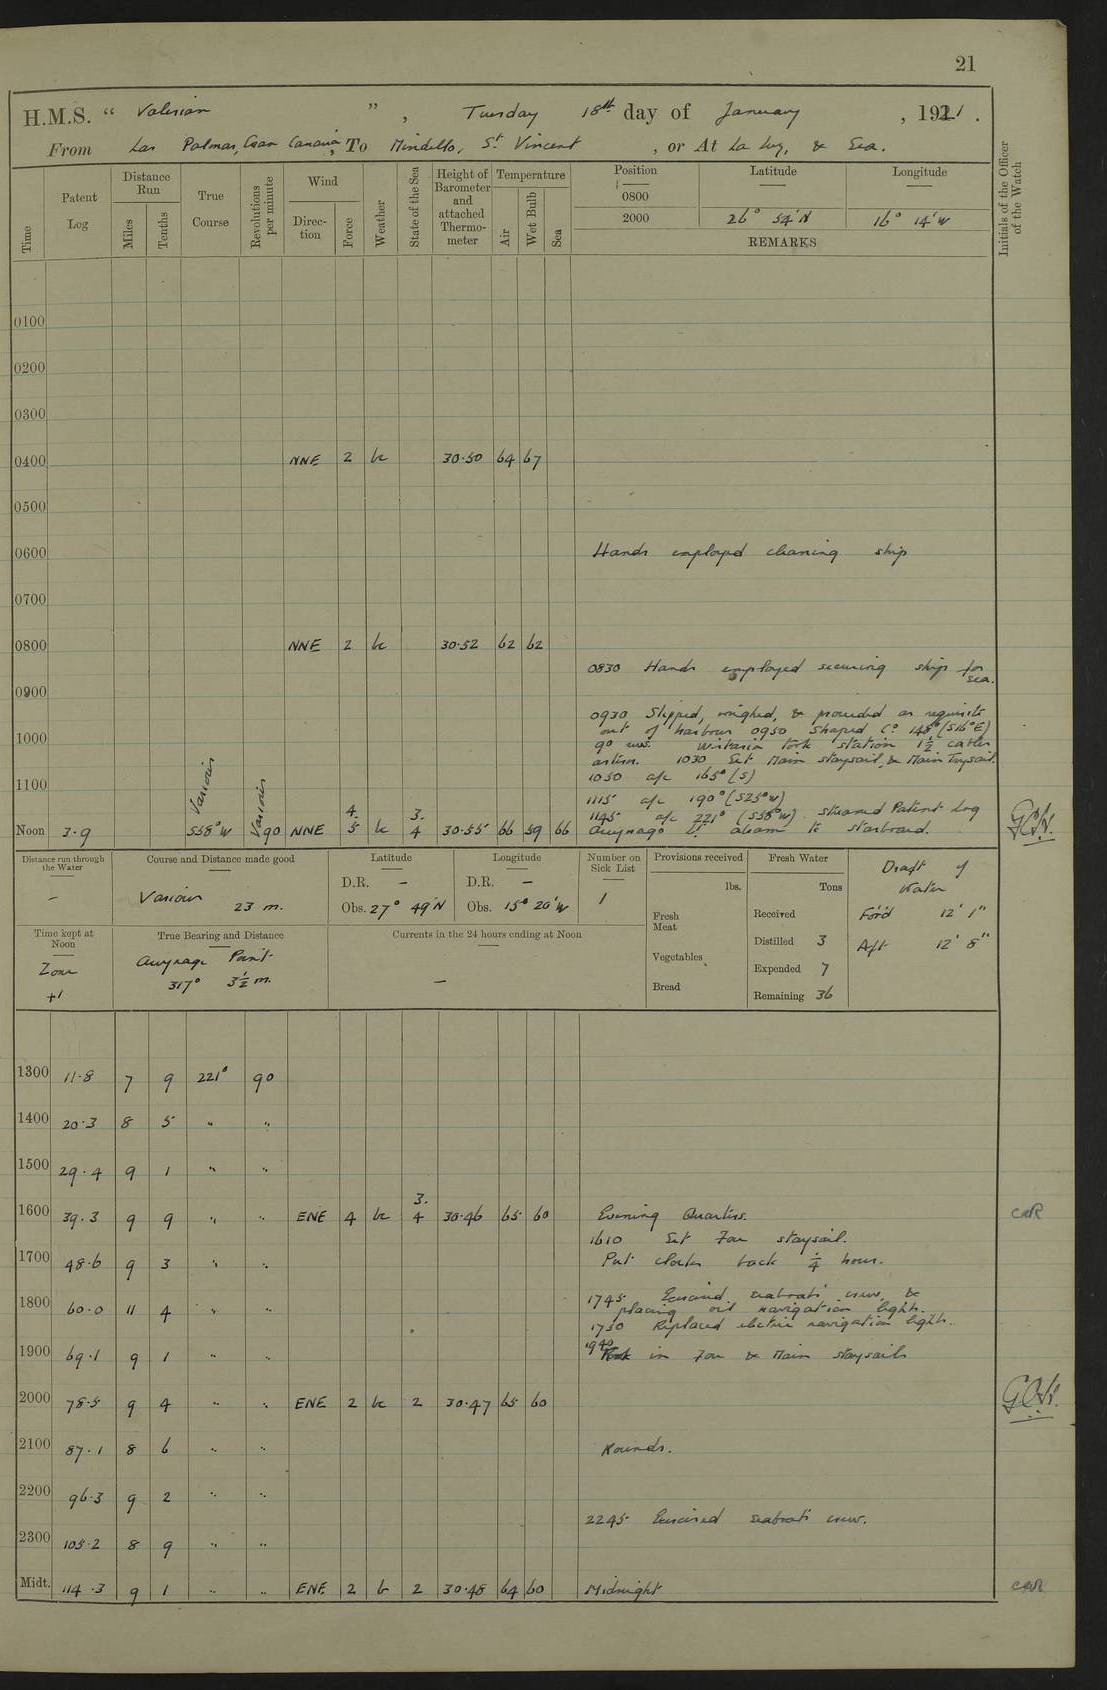 21
H.M.S. " Valerian " , Tuesday 18th day of January , 1921 .
From Las Palmas, Gran Canaria, To Mindello, St Vincent , or At La Luz, & Sea.
Time
Patent Log
Distance Run
Miles
Tenths
True Course
Revolutions per minute
Wind
Direction
Force
Weather
State of the Sea
Height of Barometer and attached Thermometer
Temperature
Air
Wet Bulb
Sea
Position
0800
2000
Latitude
26° 54' N
Longitude
16° 14' W
REMARKS
Initials of the Officer of the Watch
0100
0200
0300
0400 NNE 2 bc 30.50 64 67
0500
0600 Hands employed cleaning ship
0700
0800 NNE 2 bc 30.52 62 62
0830 Hands employed securing ship for sea.
0900
0930 Slipped, weighed, & proceeded as requisite
out of harbour 0950 Shaped Co 148° (S16°E)
1000
90 revs. Wistaria took station 1½ cables
astern. 1030 Set Main staysail, & Main Trysail.
1050 a/c 165° (S)
1100
1115 a/c 190° (S25°W)
1145 a/c 221° (S58°W). Streamed Patent Log
Noon 3.9 Various S58°W Various 90 NNE 4. 5 bc 3. 4 30.55 66 59 66 Lt. abeam to starboard.
Distance run through the Water
-
Course and Distance made good
Various 23 m.
Latitude
D.R. -
Obs. 27° 49' N
Longitude
D.R. -
Obs. 15° 20' W
Number on Sick List
1
Provisions received
lbs.
Fresh Meat
Vegetables
Bread
Fresh Water
Tons
Received
Distilled 3
Expended 7
Remaining 36
Draft of Water
For'd 12' 1"
Aft 12' 8"
Time kept at Noon
Zone +1
True Bearing and Distance
Point 317° 3½ m.
Currents in the 24 hours ending at Noon
-
1300 11.8 7 9 221° 90
1400 20.3 8 5 " "
1500 29.4 9 1 " "
1600 39.3 9 9 " " ENE 4 bc 3. 4 30.46 65 60 Evening Quarters. CAR
1610 Set Fore staysail.
1700 48.6 9 3 " " Put clocks back ¼ hour.
1745 Exercised seaboats crew, &
1800 60.0 11 4 " " placing oil navigation lights.
1750 Replaced electric navigation lights.
1900 69.1 9 1 " " 1940 Took in Fore & Main staysails
2000 78.5 9 4 " " ENE 2 bc 2 30.47 65 60
2100 87.1 8 6 " " Rounds.
2200 96.3 9 2 " "
2245 Exercised seaboats crew.
2300 105.2 8 9 " "
Midt. 114.3 9 1 " " ENE 2 b 2 30.48 64 60 Midnight CAR